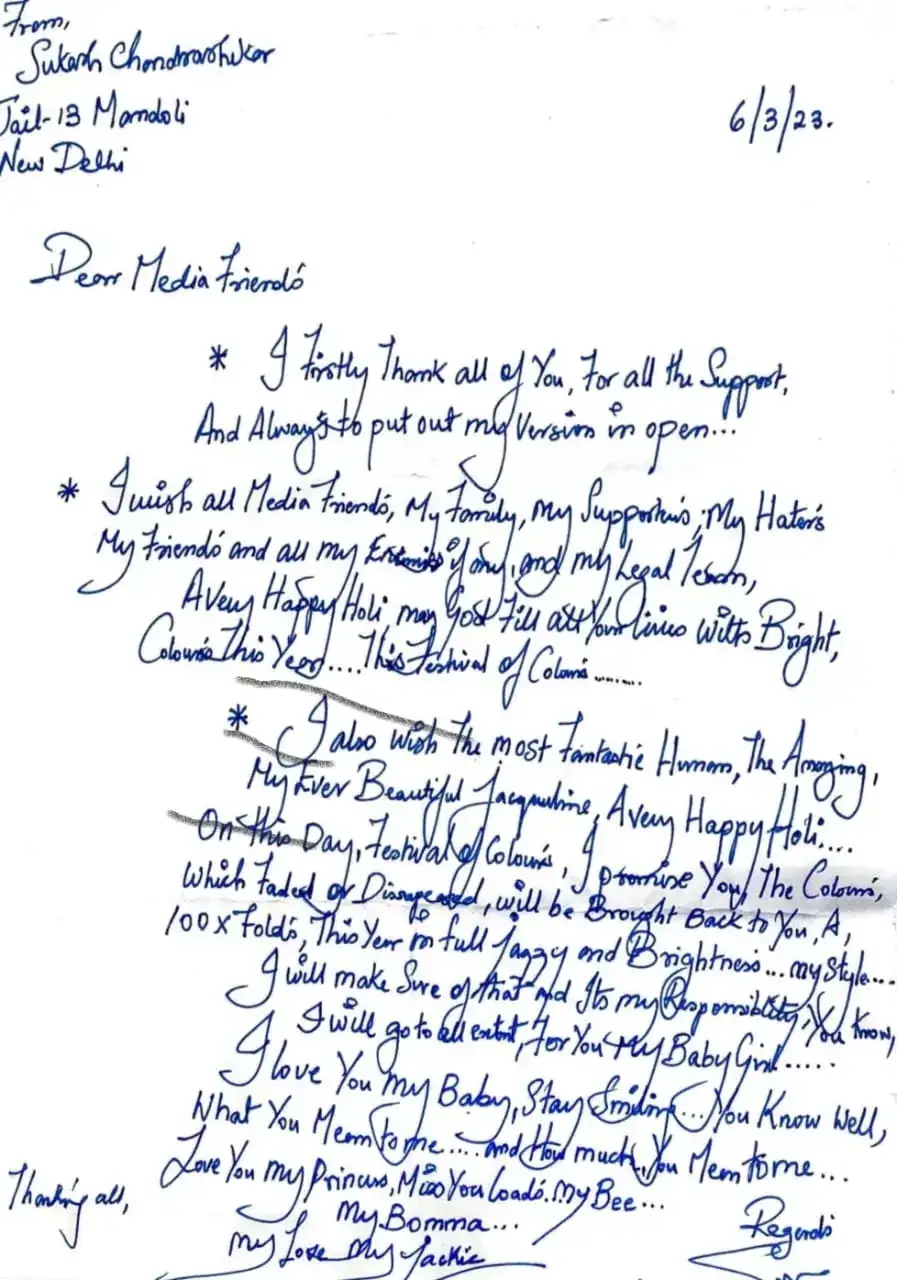 From,
Sukash Chandrashekar
Jail-13 Mandoli
New Delhi
6/3/23.
Dear Media Friends
* I Firstly Thank all of You, For all the Support,
And Always to put out my Version in open...
* I wish all Media Friends, My Family, My Supporters, My Haters
My Friends and all my Enemies if any, and my Legal Team,
A Very Happy Holi, may God Fill all Your Lives With Bright,
Colours This Year.... This Festival of Colours.......
* I also wish the most Fantastic Human, The Amazing,
My Ever Beautiful Jacqueline, A Very Happy Holi....
On this Day, Festival of Colours, I promise You, The Colours,
Which Faded or Disapeared, will be Brought Back to You, A,
100 x Folds, This Year in full Jazzy and Brightness... my Style...
I will make Sure of that and Its my Responsiblity, You Know,
I will go to all extent, For You My Baby Girl.....
I love You my Baby, Stay Smiling... You Know Well,
What You Mean to me.... and How much You Mean to me...
Love You my Princess, Miss You Loads, My Bee...
My Bomma...
My Love My Jackie
Thanking all,
Regards